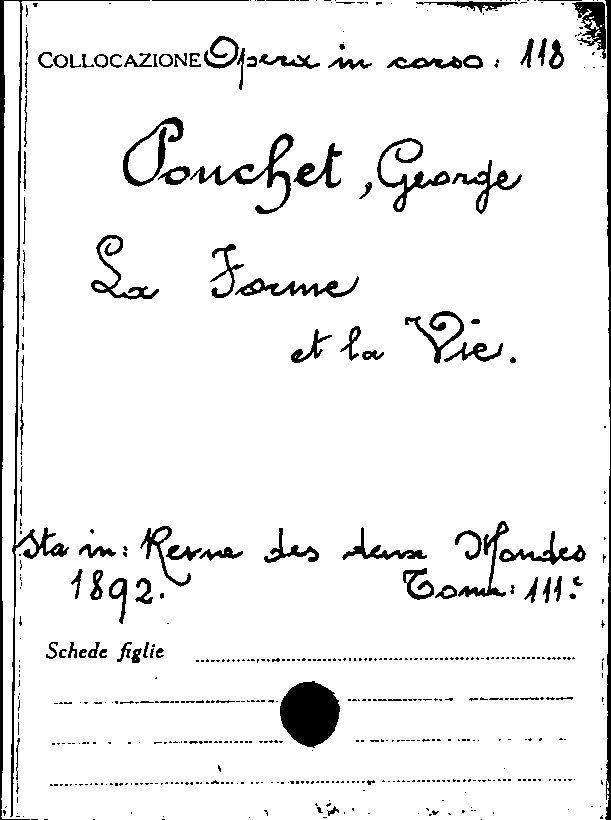 COLLOCAZIONE Opera in corso: 118
Pouchet, George
La Forme
et la Vie.
Sta in: Revue des deux Mondes
1892. Tome: 111.e
Schede figlie